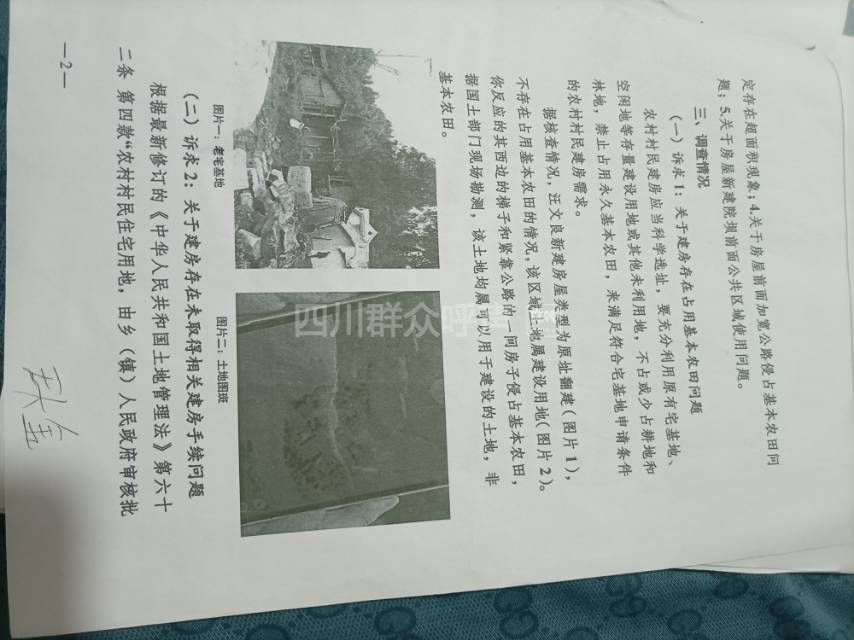 定存在超面积现象；4.关于房屋前面加宽公路侵占基本农田问
题；5.关于房屋新建院坝前面公共区域使用问题。
三、调查情况
（一）诉求1：关于建房存在占用基本农田问题
农村村民建房应当科学选址，要充分利用原有宅基地、
空闲地等存量建设用地或其他未利用地，不占或少占耕地和
林地，禁止占用永久基本农田，来满足符合宅基地申请条件
的农村村民建房需求。
据核查情况，汪文良新建房屋类型为原址翻建（图片1），
不存在占用基本农田的情况，该区域土地属建设用地（图片2）。
你反应的其西边的梯子和紧靠公路的一间房子侵占基本农田，
据国土部门现场勘测，该土地均属可以用于建设的土地，非
基本农田。
图片一：老宅基地
图片二：土地图斑
（二）诉求2：关于建房存在未取得相关建房手续问题
根据最新修订的《中华人民共和国土地管理法》第六十
二条 第四款“农村村民住宅用地，由乡（镇）人民政府审核批
—2—
四川群众呼声